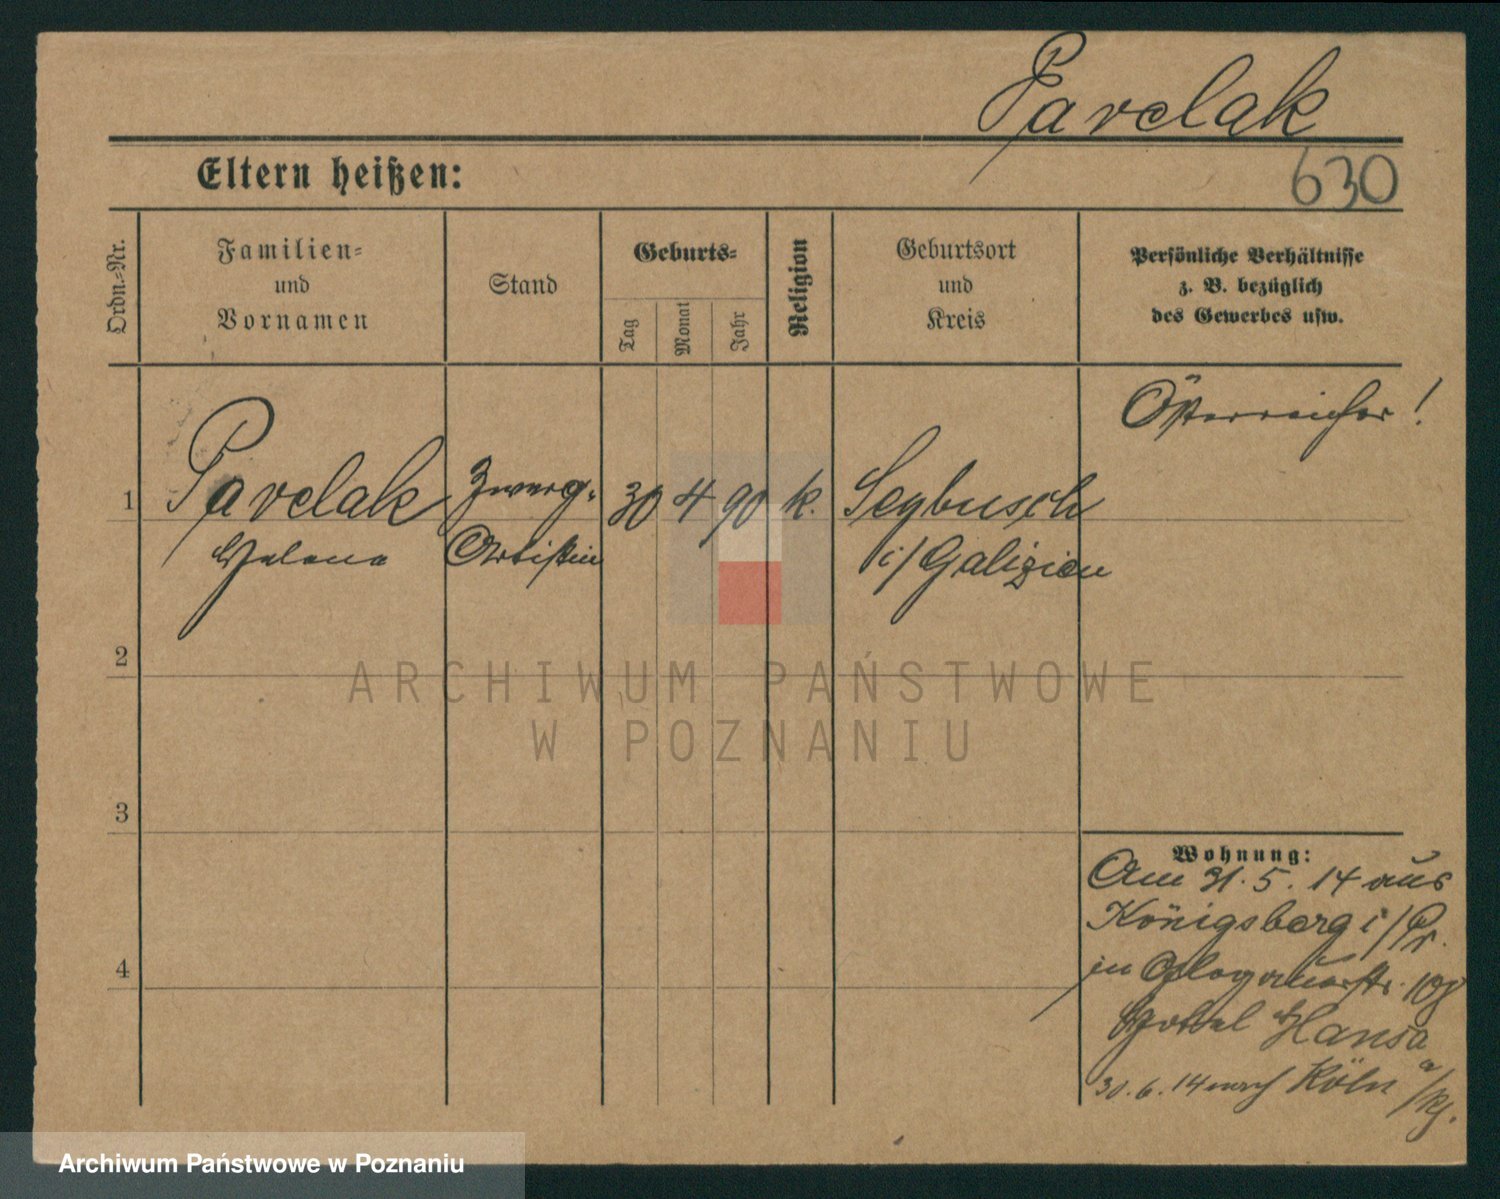 Pavelak
Eltern heißen:
630
Ordn.=Nr.
Familien=
und
Vornamen
Stand
Geburts=
Tag
Monat
Jahr
Religion
Geburtsort
und
Kreis
Persönliche Verhältnisse
z. B. bezüglich
des Gewerbes usw.
Österreicher!
1 Pavelak Zwerg- 30 4 90 k. Seybusch
Helena Artistin i/Galizien
2
ARCHIWUM PAŃSTWOWE
W POZNANIU
3
Wohnung:
Am 31.5.14 aus
Königsberg i/Pr.
in Glogauerstr. 108
4
Hotel Hansa
30.6.14 nach Köln a/Rh.
Archiwum Państwowe w Poznaniu